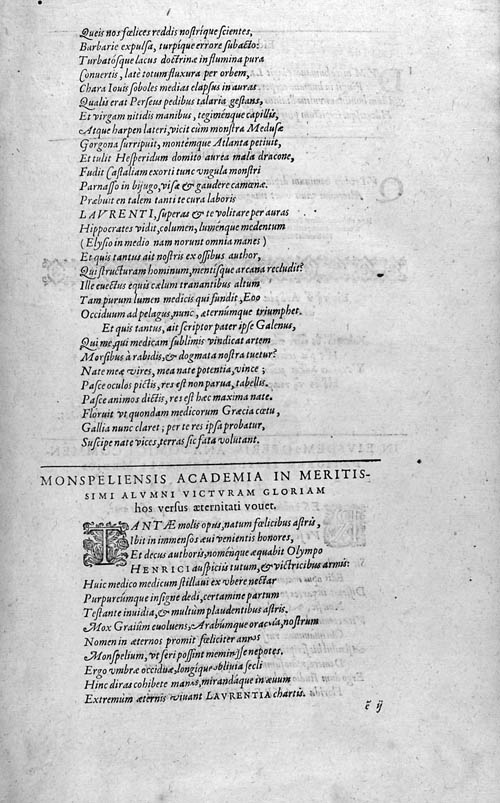 Queis nos fœlices reddis nostrique scientes,
Barbarie expulsa, turpique errore subacto:
Turbatósque lacus doctrinæ in flumina pura
Convertis, latè totum fluxura per orbem,
Chara Iouis soboles medias elapsus in auras
Qualis erat Perseus pedibus talaria gestans,
Et virgam nitidis manibus, tegiménque capillis,
Atque harpen lateri, vicit cùm monstra Medusæ
Gorgona surripuit, montémque Atlanta petiuit,
Et tulit Hesperidum domito aurea mala dracone,
Fudit Castaliam exorti tunc vngula monstri
Parnasso in bijugo, visæ & gaudere camœnæ.
Præbuit en talem tanti te cura laboris
LAVRENTI, superas & te volitare per auras
Hippocrates vidit, columen, luménque medentum
(Elysio in medio nam norunt omnia manes)
Et quis tantus ait nostris ex ossibus author,
Qui structuram hominum, mentísque arcana recludit?
Ille euectus equis cælum tranantibus altum
Tam purum lumen medicis qui fundit, Eoo
Occiduum ad pelagus, nunc, æternúmque triumphet.
Et quis tantus, ait scriptor pater ipse Galenus,
Qui me, qui medicam sublimis vindicat artem
Morsibus à rabidis, & dogmata nostra tuetur?
Nate meæ vires, mea nate potentia, vince;
Pasce oculos pictis, res est non parua, tabellis.
Pasce animos dictis, res est hæc maxima nate.
Floruit vt quondam medicorum Græcia cœtu,
Gallia nunc claret; per te res ipsa probatur,
Suscipe nate vices, terras sic fata volutant.
MONSPELIENSIS ACADEMIA IN MERITIS-
SIMI ALVMNI VICTVRAM GLORIAM
hos versus æternitati vouet.
TANTÆ molis opus, natum fœlicibus astris,
Ibit in immensos æui venientis honores,
Et decus authoris, noménque æquabit Olympo
HENRICI auspiciis tutum, & victricibus armis:
Huic medico medicum stillaui ex vbere nectar
Purpurcúmque insigne dedi, certamine partum
Testante inuidia, & multùm plaudentibus astris.
Mox Graiûm euoluens, Arabúmque oracula, nostrum
Nomen in æternos promit fœliciter annos
Monspelium, vt seri possint meminisse nepotes.
Ergo vmbræ occiduæ, longíque obliuia secli
Hinc diras cohibete manus, mirandáque in æuum
Extremum æternis viuant LAVRENTIA chartis.
ẽ ij